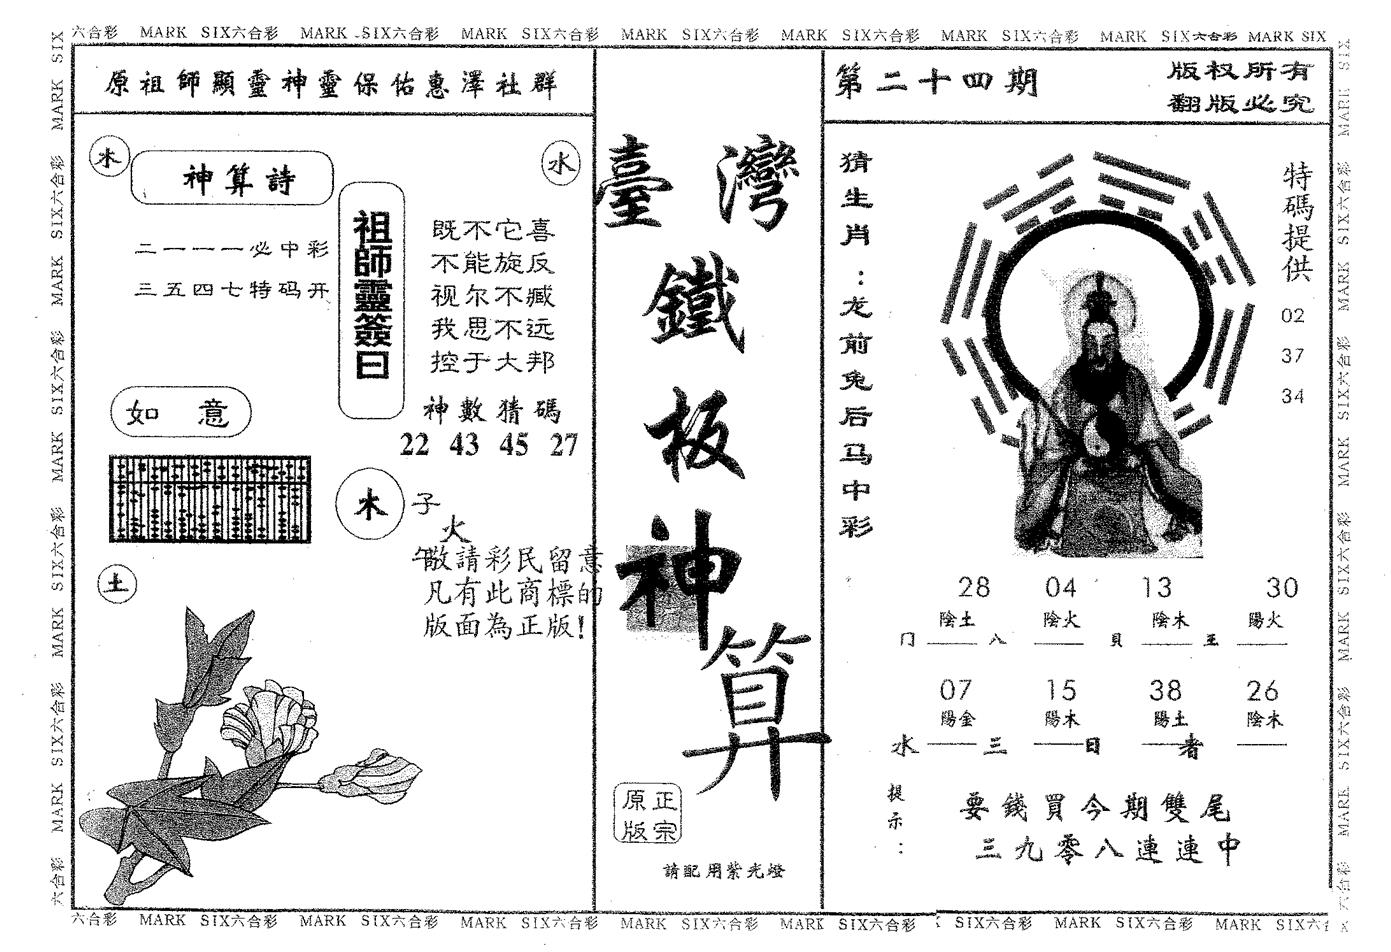 六合彩 MARK SIX六合彩 MARK SIX六合彩 MARK SIX六合彩 MARK SIX六合彩 MARK SIX六合彩 MARK SIX六合彩 MARK SIX六合彩 MARK SIX
原祖師顯靈神靈保佑惠澤社群
木
神算詩
水
二一一一必中彩
三五四七特码开
祖師靈簽曰
既不它喜
不能旋反
视尔不臧
我思不远
控于大邦
神數猜碼
22 43 45 27
如意
木
子
火
午
敬請彩民留意
凡有此商標的
版面為正版!
土
臺灣
鐵
板
神
算
正宗
原版
請配用紫光燈
第二十四期
版权所有
翻版必究
猜生肖:龙前兔后马中彩
特碼提供
02
37
34
28 04 13 30
陰土 陰火 陰木 陽火
门 八 貝 王
07 15 38 26
陽金 陽木 陽土 陰木
水 三 日 者
提示:
要錢買今期雙尾
三九零八連連中
六合彩 MARK SIX六合彩 MARK SIX六合彩 MARK SIX六合彩 MARK SIX六合彩 MARK SIX六合彩 SIX六合彩 MARK SIX六合彩 MARK SIX六